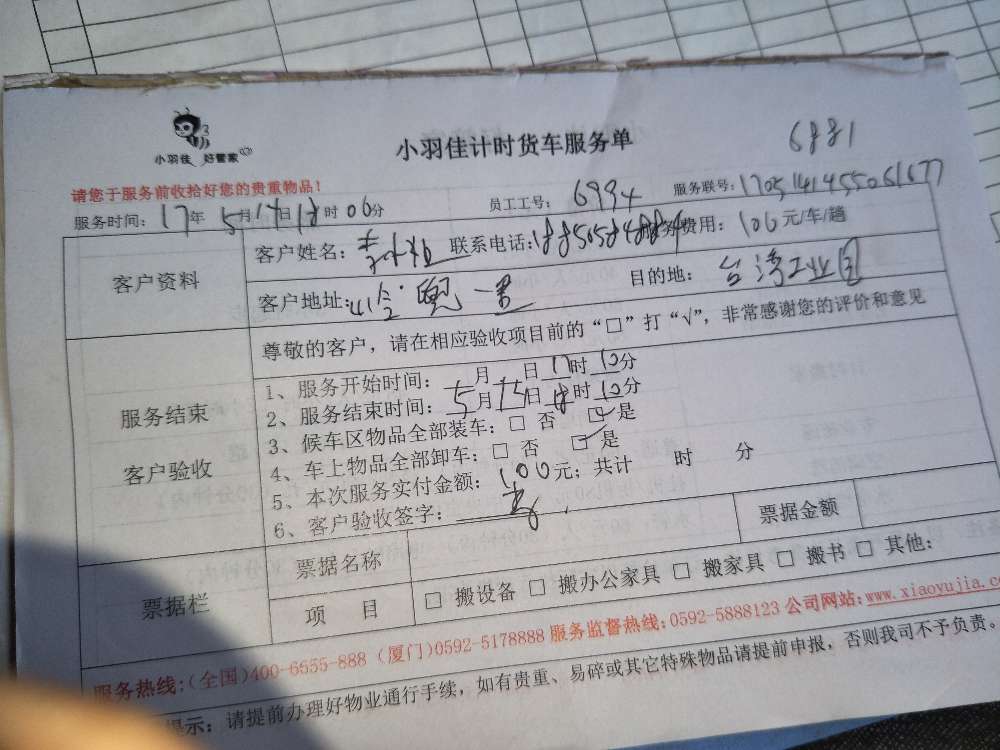 小羽佳 好管家
小羽佳计时货车服务单
6881
请您于服务前收拾好您的贵重物品!
服务时间: 17年 5月14日18时06分 员工工号: 6994 服务联号: 1705141455061677
客户资料 客户姓名: 联系电话: 服务费用: 100元/车/趟
客户地址: 目的地: 台湾工业园
尊敬的客户,请在相应验收项目前的“□”打“√”,非常感谢您的评价和意见
服务结束
客户验收
1、服务开始时间: 月 日17时10分
2、服务结束时间: 5月15日18时10分
3、候车区物品全部装车: □ 否 ☑ 是
4、车上物品全部卸车: □ 否 ☑ 是
5、本次服务实付金额: 100元; 共计 时 分
6、客户验收签字:
票据栏 票据名称 票据金额
项 目 □ 搬设备 □ 搬办公家具 □ 搬家具 □ 搬书 □ 其他:
服务热线:(全国)400-6655-888 (厦门)0592-5178888 服务监督热线:0592-5888123 公司网站:www.xiaoyujia.com
提示: 请提前办理好物业通行手续,如有贵重、易碎或其它特殊物品请提前申报,否则我司不予负责。